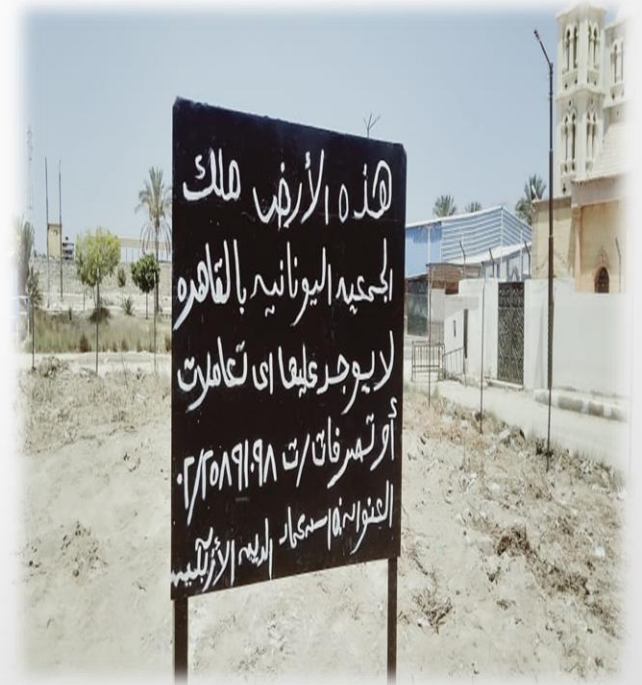 هذه الأرض ملك
الجمعيه اليونانيه بالقاهره
لا يوجد عليها اى تعاملات
أو تصرفات / ت ٠٢/٢٥٨٩١٠٩٨
العنوان ١٥ ش عماد الدين الأزبكيه